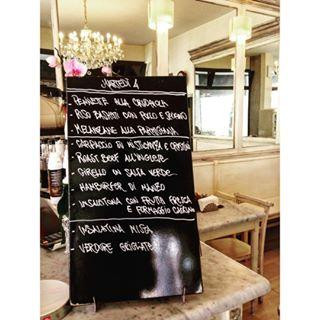 MARTEDÌ 4
- PENNETTE ALLA CRUDAIOLA
- RISO BASMATI CON POLLO E
- MELANZANE ALLA PARMIGIANA
- CARPACCIO DI E CROSTINI
- ROAST BEEF ALL'INGLESE
- GIRELLO IN SALSA VERDE
- HAMBURGER DI MANZO
- CON FRUTTA FRESCA
E FORMAGGIO
- INSALATINA MISTA
- VERDURE GRIGLIATE